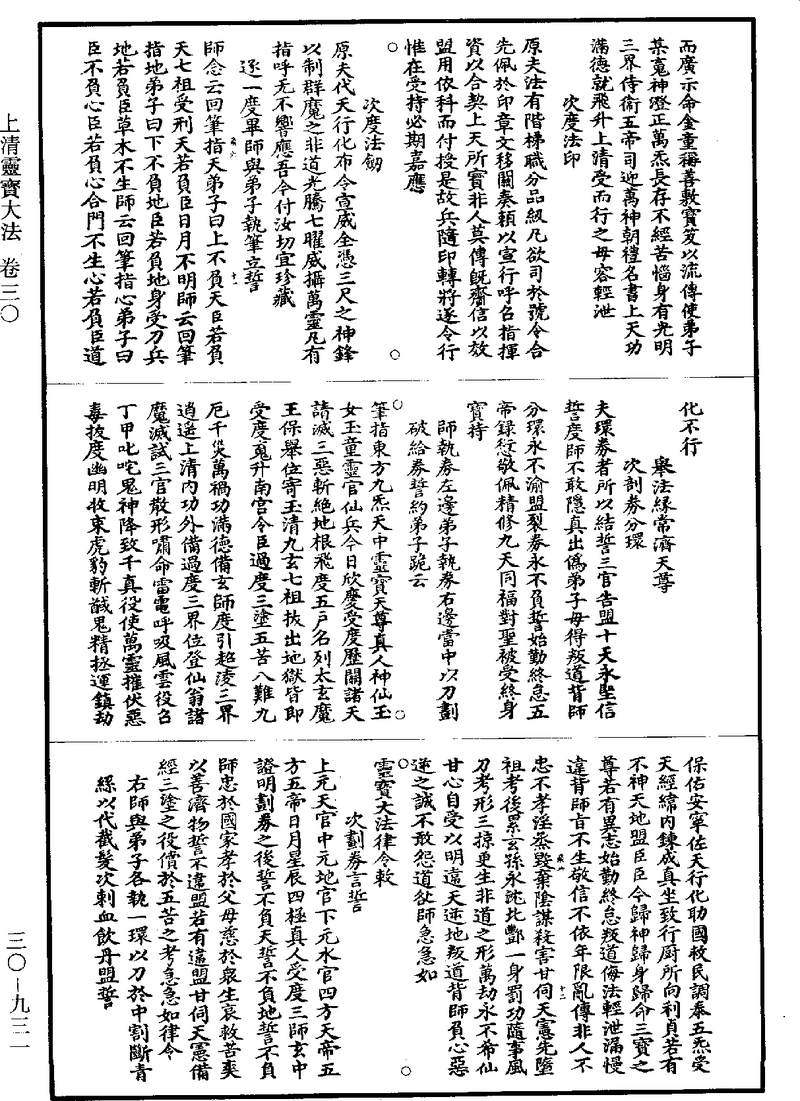 而廣示命金童稱善敷寶笈以流傳使弟子
某䰟神澄正萬炁長存不經苦惱身有光明
三界侍衛五帝司迎萬神朝禮名書上天功
滿德就飛升上清受而行之毋容輕泄
次度法印
原夫法有階梯職分品級凡欲司於號令合
先佩於印章文移關奏賴以宣行呼召指揮
資以合契上天所寶非人莫傳旣齎信以放
盟用依科而付授是故兵隨印轉將逐令行
惟在受持必期嘉應
○
次度法劒
○
原夫代天行化布令宣威全憑三尺之神鋒
以制群魔之非道光騰七曜威攝萬靈凡有
指呼无不響應吾今付汝切宜珍藏
逐一度畢師與弟子執筆立誓
師念云回筆指天弟子曰上不負天臣若負
天七祖受刑天若負臣日月不明師云回筆
指地弟子曰下不負地臣若負地身受刀兵
地若負臣草木不生師云回筆指心弟子曰
臣不負心臣若負心合門不生心若負臣道
化不行
舉法緣常濟天尊
次剖券分環
夫環券者所以結誓三官告盟十天永堅信
誓度師不敢隱真出僞弟子毋得叛道背師
分環永不渝盟裂券永不負誓始勤終怠五
帝錄愆敬佩精修九天同福對聖被受終身
寶持
師執券左邊弟子執券右邊當中以刀劃
破給券誓約弟子跪云
○
○
筆指東方九炁天中靈寶天尊真人神仙玉
女玉童靈官仙兵今日欣慶受度歷關諸天
請滅三惡斬絕地根飛度五戶名列太玄魔
王保舉位寄玉清九玄七祖拔出地獄皆即
受度䰟升南宮令臣過度三塗五苦八難九
厄千災萬禍功滿德備玄師度引超淩三界
逍遙上清內功外備過度三界位登仙翁諸
魔滅試三官散形嘯命雷電呼吸風雲役召
丁甲叱咤鬼神降致千真役使萬靈摧伏惡
毒拔度幽明收束虎豹斬馘鬼精拯運鎮劫
保佑安寧佐天行化助國救民調泰五炁受
天經緯內鍊成真坐致行厨所向利貞若有
不神天地盟臣臣今歸神歸身歸命三寶之
尊若有異志始勤終怠叛道侮法輕泄漏慢
違背師旨不生敬信不依年限亂傳非人不
忠不孝淫烝毀棄陰謀殺害甘伺天憲先墮
祖考後累玄孫永沈北酆一身罰功隨事風
刀考形三掠更生非道之形萬劫永不希仙
甘心自受以明違天逆地叛道背師負心惡
逆之誠不敢怨道訟師急急如
○
靈寶大法律令敕
○
次劃券言誓
上元天官中元地官下元水官四方天帝五
方五帝日月星辰四極真人受度三師玄中
證明劃券之後誓不負天誓不負地誓不負
師忠於國家孝於父母慈於衆生哀救苦爽
以善濟物誓不違盟若有違盟甘伺天憲備
經三塗之役償於五苦之考急急如律令
右師與弟子各執一環以刀於中割斷青
絲以代截髮次刺血飲丹盟誓
上清靈寶大法 卷三〇
三〇－九三一